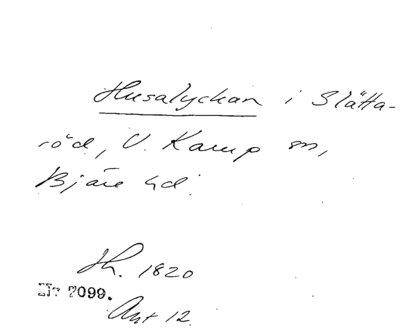 Husalyckan i Slätta-
röd, V. Karup sn,
Bjäre hd.
Sk. 1820
Nr 7099.
Ant 12.